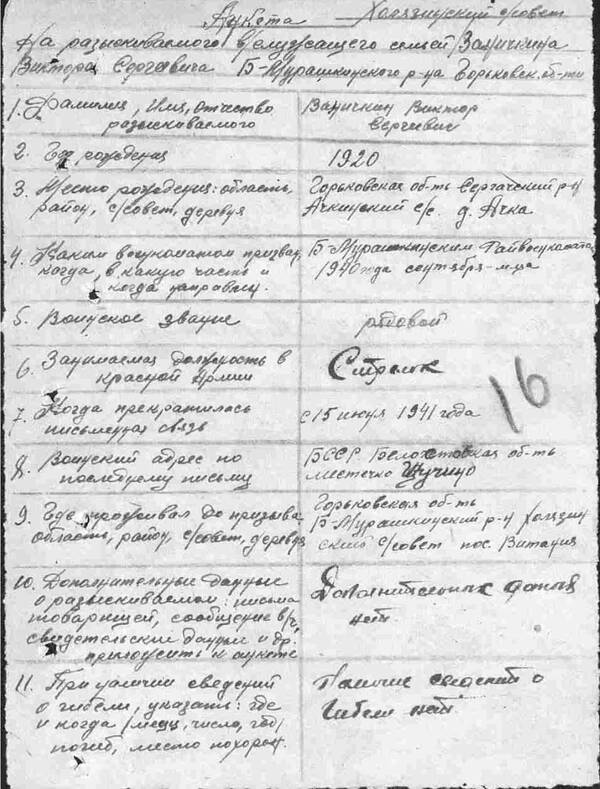 Анкета Холязинский с/совет
На разыскиваемого в/служащего семьей Заничкина
Виктора Сергеевича Б-Мурашкинского р-на Горьковск. об-ти
1. Фамилия, Имя, Отчество разыскиваемого
Заничкин Виктор Сергеевич
2. Год рождения
1920
3. Место рождения: область, район, с/совет, деревня
Горьковская об-ть Сергачский р-н
Ачкинский с/с. д. Ачка
4. Каким военкоматом призван,
когда, в какую часть и
когда направлен.
Б-Мурашкинским Райвоенкоматом
1940 года сентября м-ца
5. Воинское звание
рядовой
6. Занимаемая должность в
Красной Армии
Стрелок
16
7. Когда прекратилась
письменная связь
с 15 июня 1941 года
8. Воинский адрес по
последнему письму
БССР Белостокская об-ть
местечко Щучино
9. Где проживал до призыва
область, район, с/совет, деревня
Горьковская об-ть
Б-Мурашкинский р-н Холязин
ский с/совет пос.
10. Дополнительные данные
о разыскиваемом: письма
товарищей, сообщение в/ч,
свидетельские данные и др.
приложить к анкете
Дополнительных данных
нет.
11. При наличии сведений
о гибели, указать: где
и когда /месяц, число, год/
погиб, место похорон.
Наличие сведений о
гибели нет